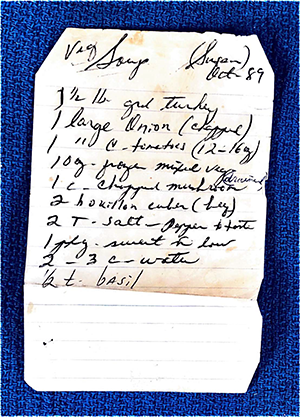 Veg Soup (Susan)
Oct-89
1 1/2 lb grd turkey
1 large Onion (chopped)
1 " C - tomatoes (12-16oz)
10 oz - froze mixed veg
1 c - chopped mushroom (drained)
2 bouillon cubes (beg)
2 T - salt - Pepper to taste
1 pkg - sweet n low
2 - 3 c - water
1/2 t. basil